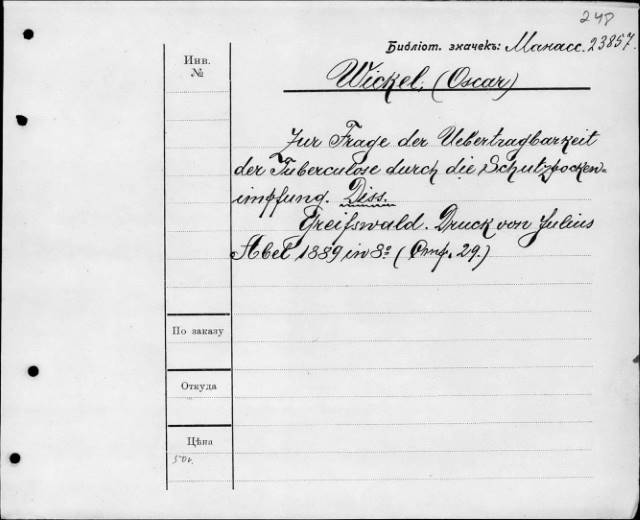 248
Библіот. значекъ: Манасс. 23857.
Инв.
№
Wickel, (Oscar)
Zur Frage der Uebertragbarkeit
der Tuberculose durch die Schutzpocken-
impfung. Diss.
Greifswald. Druck von Julius
Abel 1889 in 8º (стр. 29.)
По заказу
Откуда
Цѣна
50к.